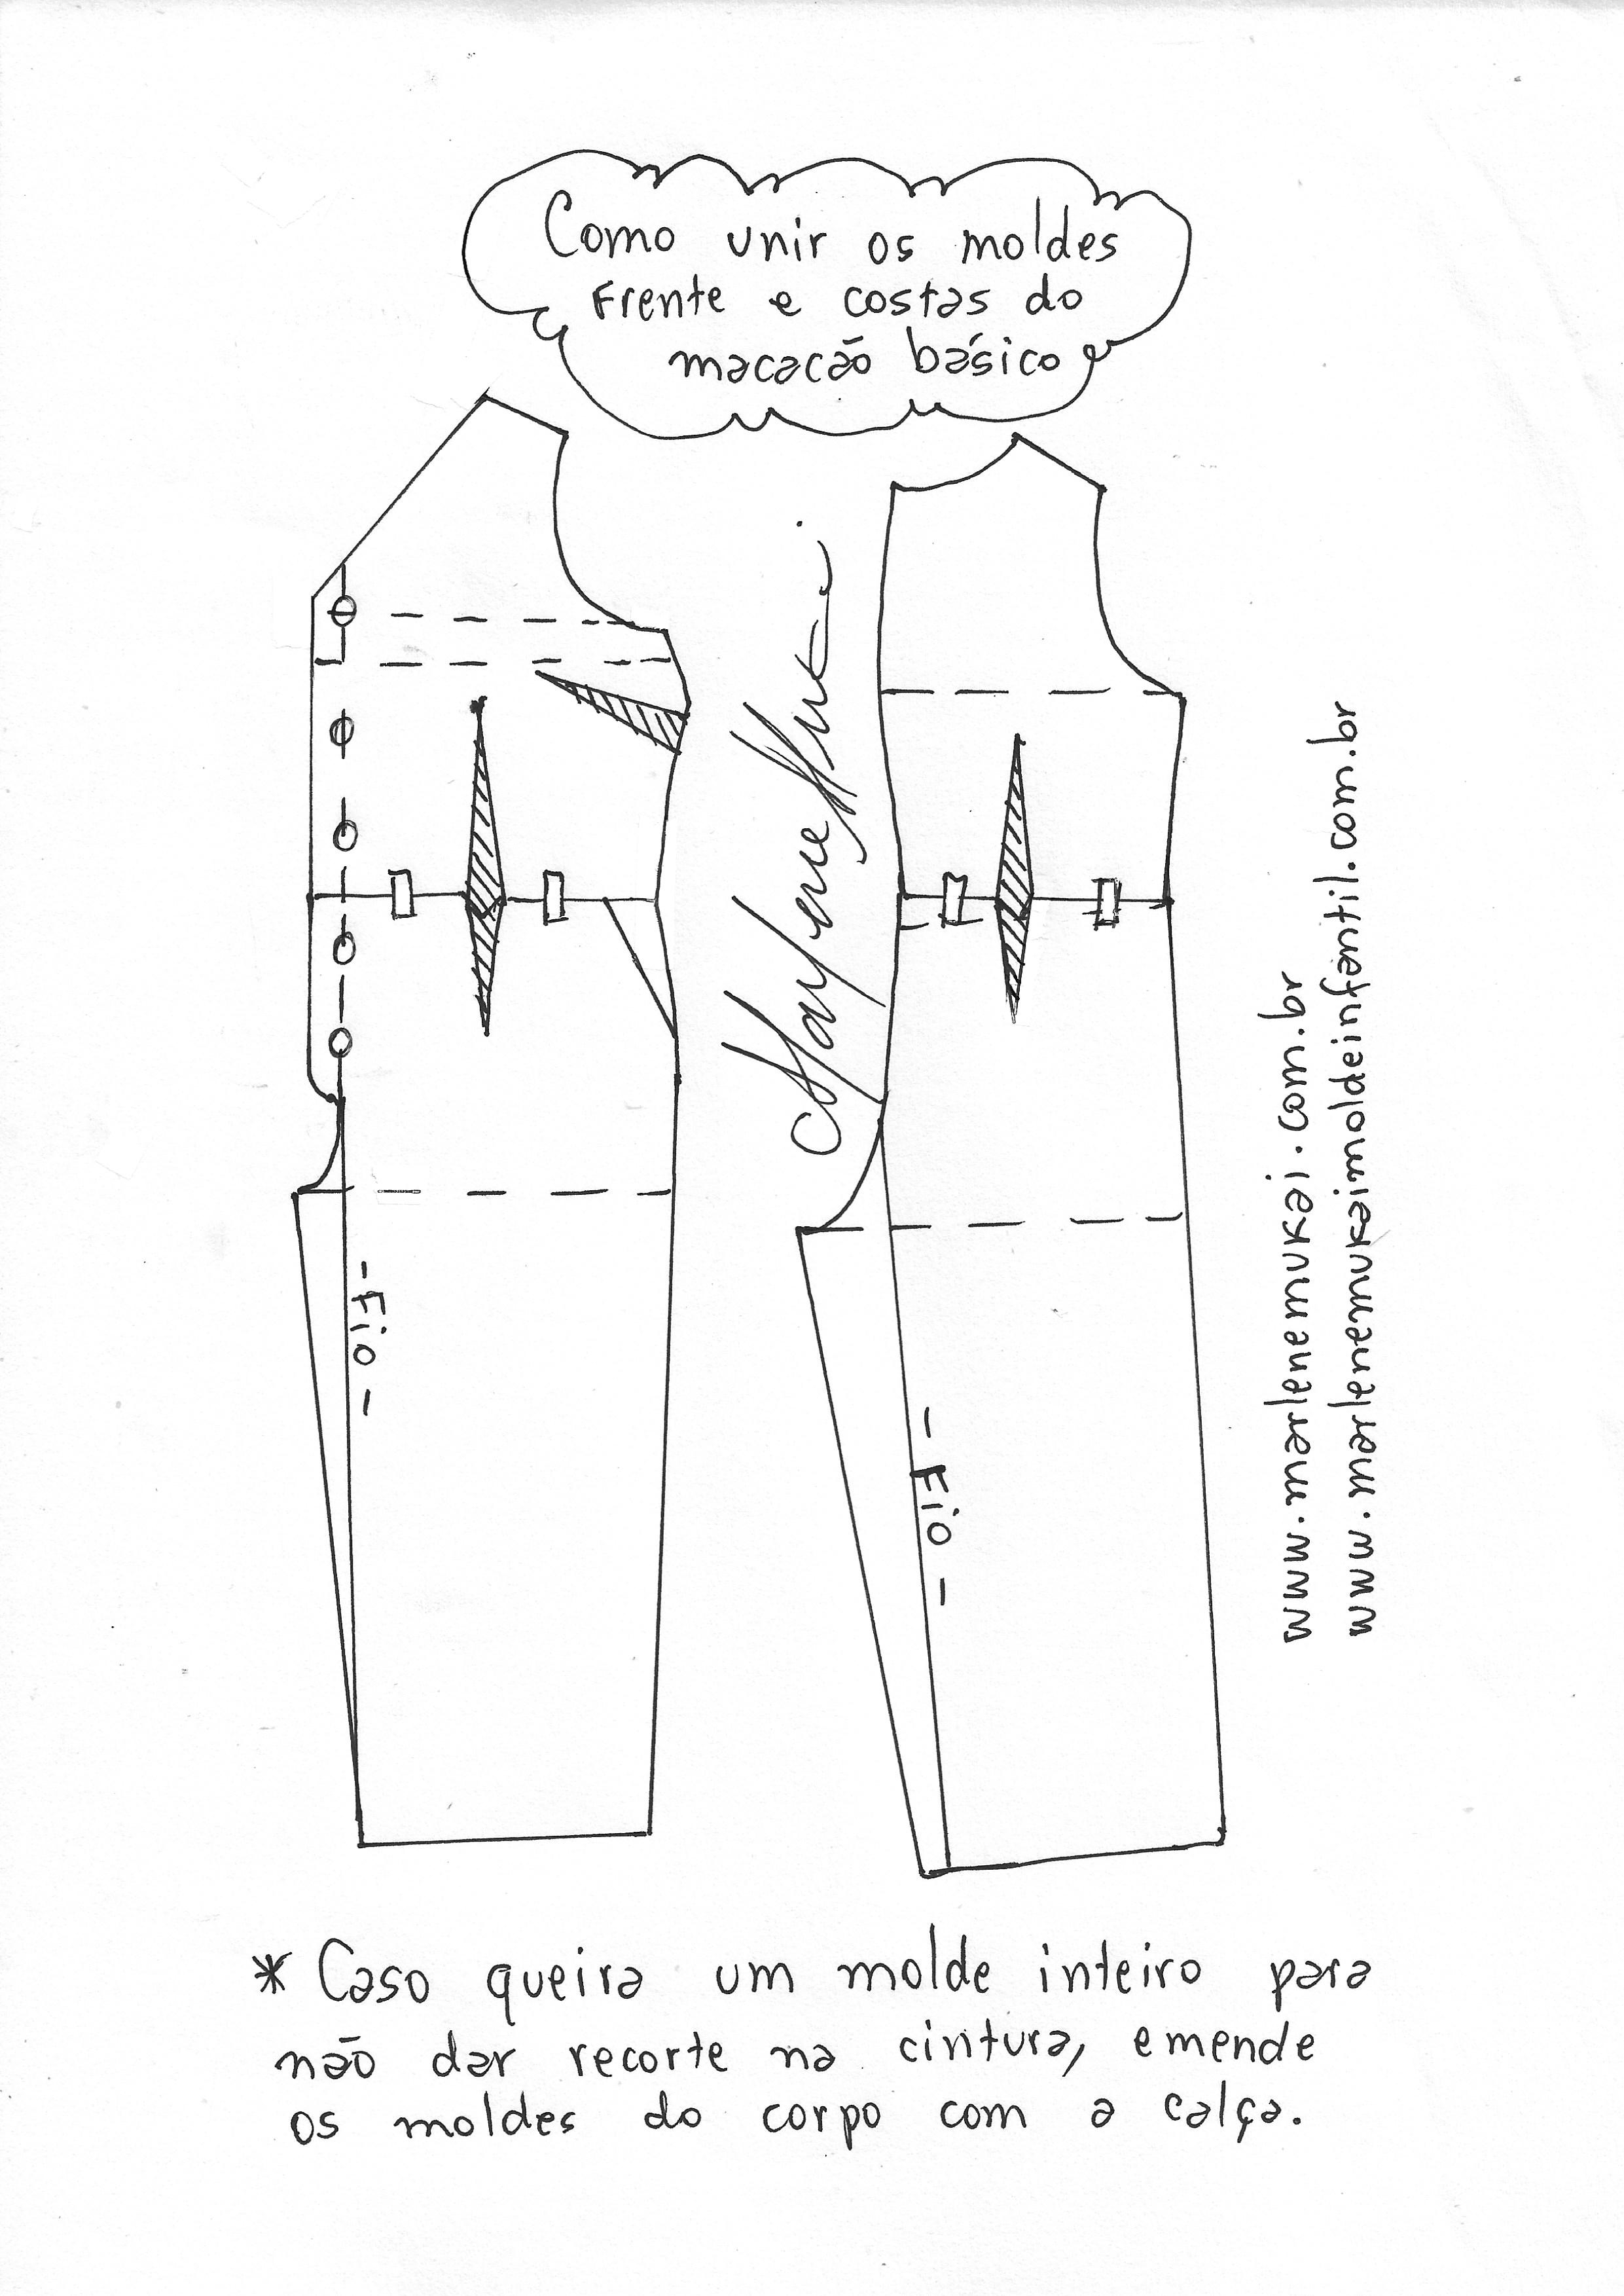 Como unir os moldes
Frente e costas do
macacão básico
- Fio -
- Fio -
www.marlenemukai.com.br
www.marlenemukaimoldeinfantil.com.br
* Caso queira um molde inteiro para
não dar recorte na cintura, emende
os moldes do corpo com a calça.